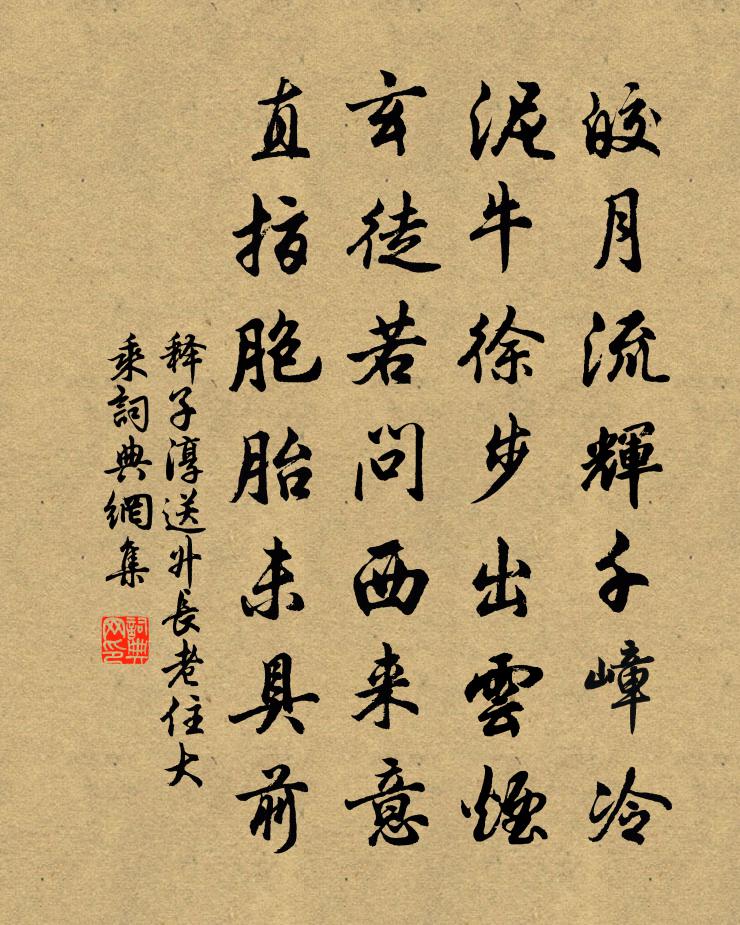 皎月流輝千嶂冷
泥牛徐步出雲煙
玄徒若問西来意
直指胞胎未具前
释子淳送升長老住大
乘詞典網集
詞典网印